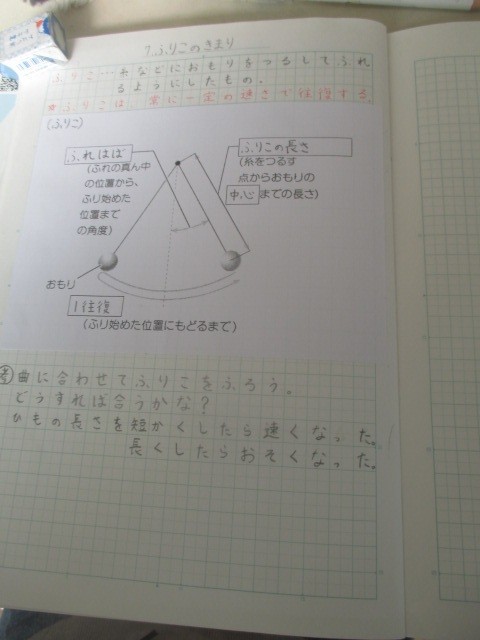 7.ふりこのきまり
ふりこ…糸などにおもりをつるしてふれ
るようにしたもの。
★ふりこは、常に一定の速さで往復する。
(ふりこ)
ふれはば
(ふれの真ん中
の位置から、
ふり始めた
位置まで
の角度)
ふりこの長さ
(糸をつるす
点からおもりの
中心までの長さ)
おもり
1往復
(ふり始めた位置にもどるまで)
考曲に合わせてふりこをふろう。
どうすれば合うかな?
ひもの長さを短かくしたら速くなった。
長くしたらおそくなった。